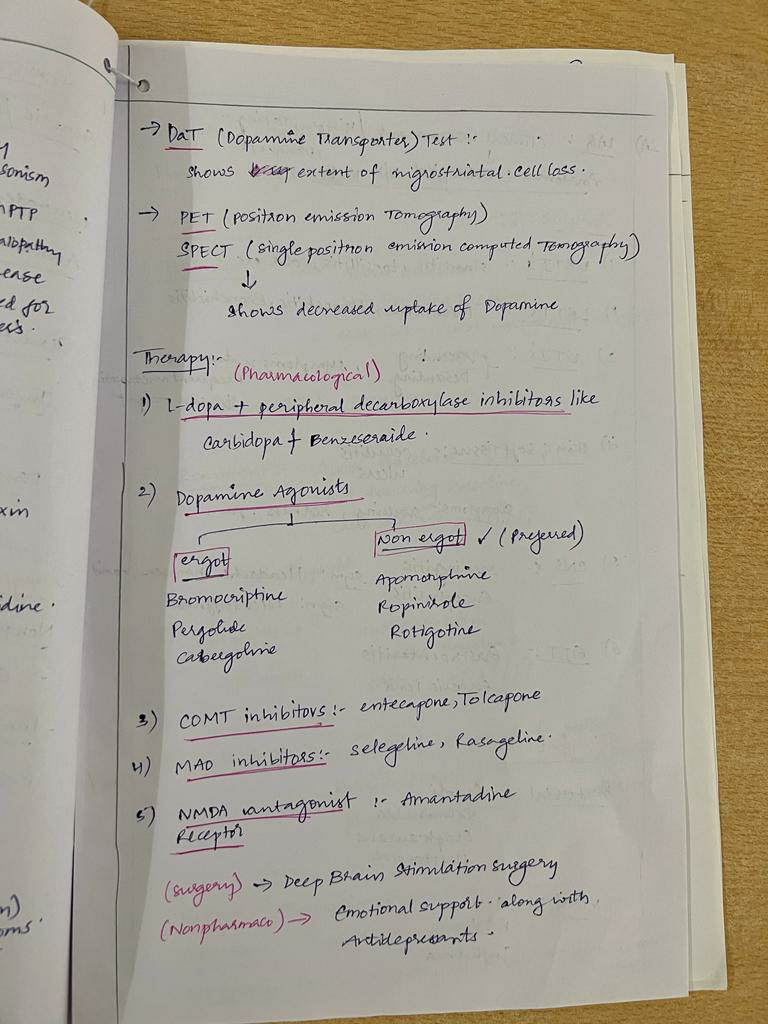 y
sonism
MPTP
ease
ed for
xin
idine.
→ DaT (Dopamine Transporter) Test :-
shows extent of nigrostriatal cell loss.
→ PET (positron emission Tomography)
SPECT (single positron emission computed Tomography)
↓
shows decreased uptake of Dopamine
Therapy:-
(Pharmacological)
1) L-dopa + peripheral decarboxylase inhibitors like
Carbidopa + Benzeseraide.
2) Dopamine Agonists
ergot
Non ergot ✓ (Preferred)
Bromocriptine
Apomorphine
Pergolide
Ropinirole
Cabergoline
Rotigotine
3) COMT inhibitors :- entecapone, Tolcapone
4) MAO inhibitors:- selegeline, Rasageline.
5) NMDA antagonist :- Amantadine
Receptor
(surgery) → Deep Brain Stimulation surgery
(Nonpharmaco) → Emotional support along with
Antidepressants.